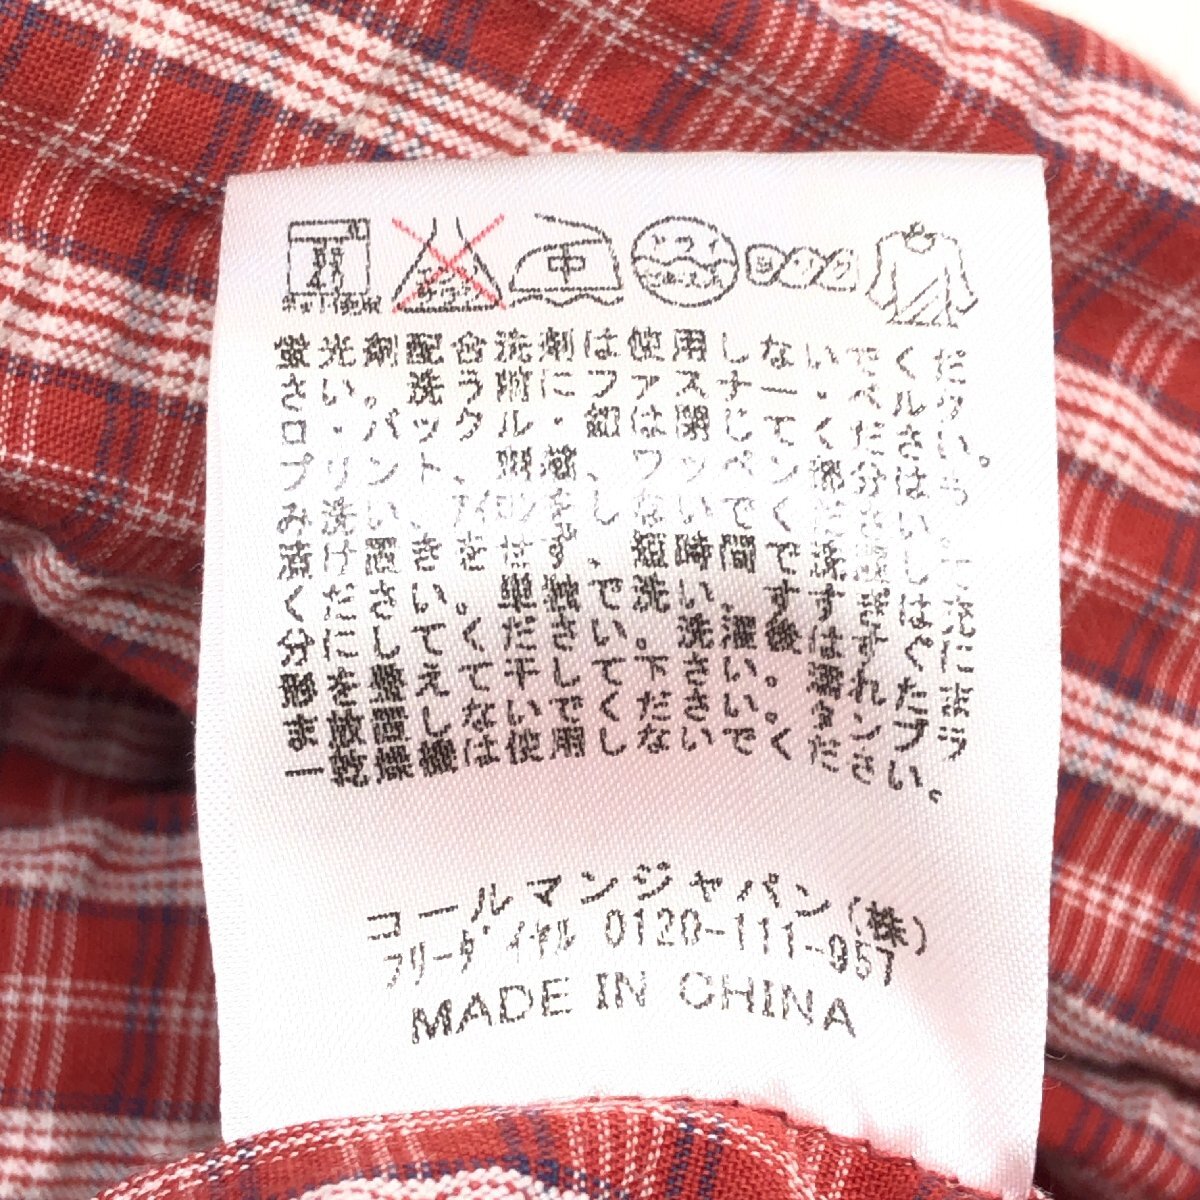 中
ドライ
蛍光剤配合洗剤は使用しないでくだ
さい。洗う前にファスナー・ベルク
ロ・バックル・釦は閉じてください。
プリント、刺繍、ワッペン部分はも
み洗い、アイロンをしないでください。
漬け置きをせず、短時間で洗
ください。単独で洗い、すすぎは充
分にしてください。洗濯後は
形を整えて干して下さい。濡れたま
ま放置しないでください。タンブラ
ー乾燥機は使用しないでください。
コールマンジャパン(株)
フリーダイヤル 0120-111-957
MADE IN CHINA